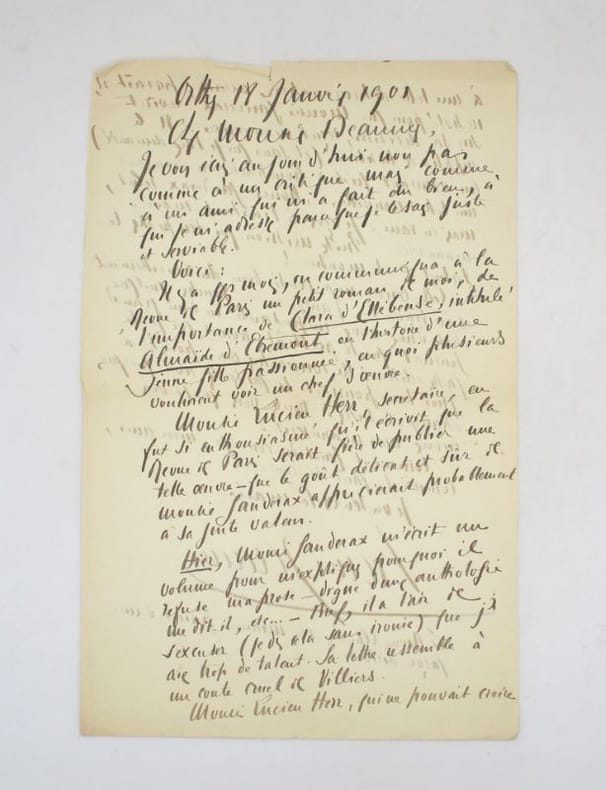 Orthez 18 Janvier 1901
Cher Monsieur Beaunier,
Je vous écris aujourd'hui non pas
comme à un critique mais comme
à un ami qui m'a fait du bien, à
qui je m'adresse parce que je le sais juste
et serviable.
Voici :
Il y a mois, on communiqua à la
Revue de Paris un petit roman de moi, de
l'importance de Clara d'Ellébeuse, intitulé
Almaïde d'Etremont ou l'histoire d'une
Jeune fille passionnée, en quoi plusieurs
voulurent voir un chef d'œuvre.
Monsieur Lucien Herr secrétaire, en
fut si enthousiasmé qu'il écrivit que la
Revue de Paris serait fière de publier une
telle œuvre – que le goût délicat et sûr de
Monsieur Ganderax apprécierait probablement
à sa juste valeur.
Hier, Monsieur Ganderax m'écrit un
volume pour m'expliquer pourquoi il
refuse ma prose – digne d'une anthologie
me dit-il, etc... – Bref, il a l'air de
s'excuser (je dis cela sans ironie) que j'
aie trop de talent. Sa lettre ressemble à
un conte cruel de Villiers.
Monsieur Lucien Herr, qui ne pouvait croire